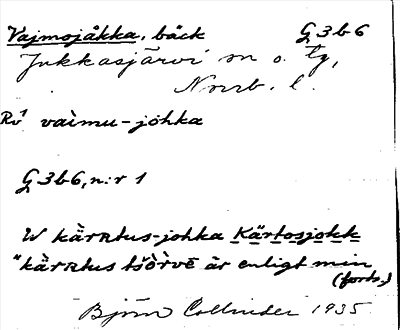 Vajmojåkka, bäck G3b6
Jukkasjärvi sn o. tg,
Norrb. l.
Rv̀ vaìmu-johka
G3b6, n:r 1
W kärratus-johka Kärtosjokk
"kärratus tšòrvē är enligt min
(forts.)
Björn Collinder 1935